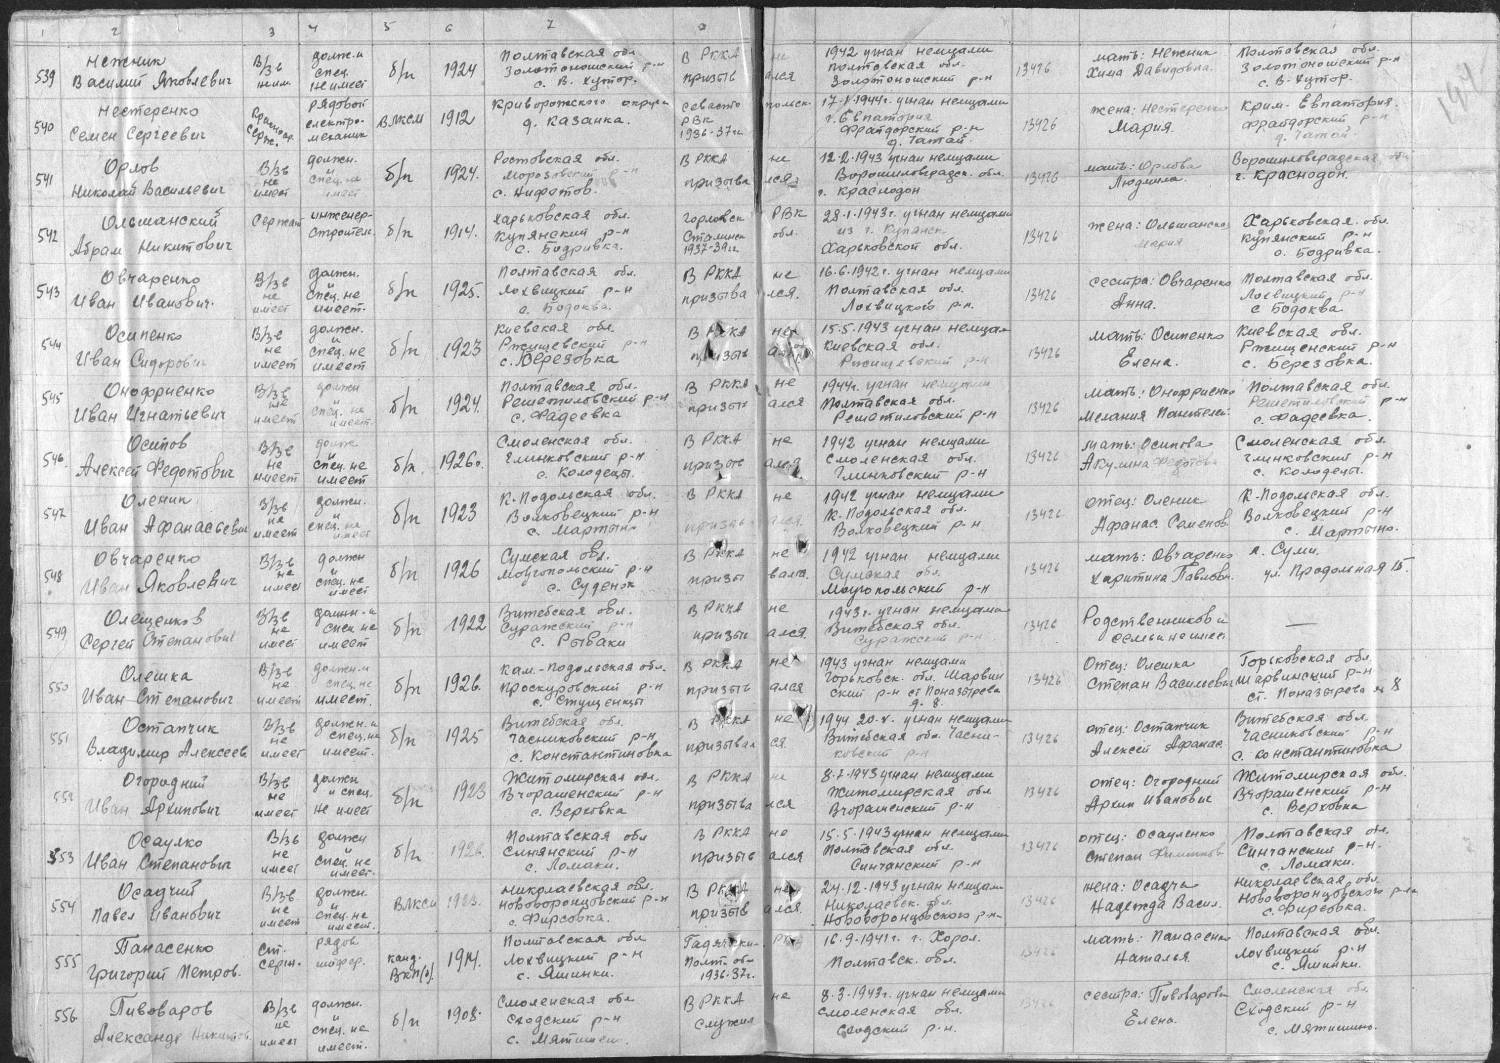 1 2 3 4 5 6 7 8
539 Нежник Василий Яковлевич В/зв не им. должн. и спец. не имеет б/п 1924 Полтавская обл. Золотоношский р-н с. В. Хутор. В РККА не призывался 1942 угнан немцами Полтавская обл. Золотоношский р-н 13426 мать: Нежник Хима Давидовна. Полтавская обл. Золотоношский р-н с. В-Хутор.
540 Нестеренко Семен Сергеевич Красноар. рядовой електро-механик ВЛКСМ 1912 Криворожского округа д. Казанка. Севастопольск. РВК 1936-37гг. 17-V-1944г. угнан немцами г. Евпатория Фрайдорский р-н д. Чатай 13426 жена: Нестеренко Мария. Крим. Евпатория. Фрайдорский р-н д. Чатай.
541 Орлов Николай Васильевич В/зв не имеет должн. и спец. не имеет б/п 1924. Ростовская обл. Морозовский р-н с. Нифотов. В РККА не призывался 12-2-1943 угнан немцами Ворошиловградск. обл. г. Краснодон 13426 мать: Орлова Людмила. Ворошиловградская обл г. Краснодон.
542 Ольшанский Абрам Никитович Сержант инженер-строител. б/п 1914. Харьковская обл. Купянский р-н с. Бодривка. Горловск РВК Сталинск обл. 1937-39гг 28-1-1943г. угнан немцами из г. Купянск Харьковской обл. 13426 жена: Ольшанска Мария Харьковская обл. Купянский р-н с. Бодривка.
543 Овчаренко Иван Иванович. В/зв не имеет должн. и спец. не имеет. б/п 1925. Полтавская обл. Лохвицкий р-н с. Бодоква. В РККА не призывался. 16-6-1942г. угнан немцами Полтавская обл. Лохвицкого р-н. 13426 сестра: Овчаренко Анна. Полтавская обл. Лохвицкий р-н с Бодоква
544 Осипенко Иван Сидорович В/зв не имеет должн. и спец. не имеет б/п 1923 Киевская обл. Ржищевский р-н с. Березовка В РККА не призывался 15-5-1943 угнан немцам Киевская обл. Ржищевский р-н 13426 мать: Осипенко Елена. Киевская обл. Ржищенский р-н с. Березовка.
545 Онофриенко Иван Игнатьевич В/зв не имеет должн и спец. не имеет. б/п 1924. Полтавская обл. Решетиловский р-н с. Фадеевка В РККА не призывался 1944г. угнан немцами Полтавская обл. Решетиловский р-н 13426 мать: Онофриенко Мелания Пантелей Полтавская обл. Решетиловский р-н с. Фадеевка.
546. Осипов Алексей Федотович В/зв не имеет должн и спец. не имеет б/п 1926г. Смоленская обл. Глинковский р-н с. Колодецы. В РККА не призывался 1942 угнан немцами Смоленская обл. Глинковский р-н 13426 мать: Осипова Акулина Смоленская обл. Глинковский р-н с. Колодецы.
547 Оленик Иван Афанасьевич В/зв не имеет должн. и спец. не имеет б/п 1923 К-Подольская обл. Волковецкий р-н с. Мартыни В РККА не призывался 1942 угнан немцами К-Подольская обл. Волковецкий р-н 13426 отец: Оленик Афанас. Семенов. К-Подольская обл. Волковецкий р-н с. Мартыно.
548 Овчаренко Иван Яковлевич В/зв не имеет должн и спец. не имеет б/п 1926 Сумская обл. р-н с. Суденок В РККА не призывался. 1942 угнан немцами Сумская обл. р-н 13426 мать: Овчаренко Харитина Павловн. г. Сумы. ул. Продольная 15.
549 Олещенков Сергей Степанович В/зв не имеет должн-и спец. не имеет б/п 1922 Витебская обл. Суражский р-н с. Рываки В РККА не призывался. 1943г. угнан немцами Витебская обл. Суражский р-н 13426 Родственников и семьи не имеет —
550 Олешка Иван Степанович В/зв не имеет должн-и спец. не имеет. б/п 1926. Кам.-Подольская обл. Проскуровский р-н с. Стуценцы В РККА не призывался 1943 угнан немцами Горьковск. обл. Шарвинский р-н ст. Поназырева д. 8. 13426 отец: Олешка Степан Васильевич Горьковская обл. Шарвинский р-н ст. Поназырева д. 8
551 Остапчик Владимир Алексеев. В/зв не имеет должн. и спец. не имеет. б/п 1925 Витебская обл. Часниковский р-н с. Константиновка В РККА не призывался. 1944 20-V- угнан немцами Витебская обл. Часниковский р-н 13426 отец: Остапчик Алексей Афанас. Витебская обл. Часниковский р-н с. Константиновка
552 Огородний Иван Архипович В/зв не имеет должн и спец. не имеет б/п 1923 Житомирская обл. Вчорашенский р-н с. Верховка В РККА не призывался 8-I-1943 угнан немцами Житомирская обл Вчорашенский р-н 13426 отец: Огородний Архип Иванович Житомирская обл. Вчорашенский р-н с. Верховка
553 Осаулко Иван Степанович В/зв не имеет должн и спец. не имеет. б/п 1926. Полтавская обл Синянский р-н с. Ломаки. В РККА не призывался 15-5-1943 угнан немцами Полтавская обл. Синчанский р-н 13426 отец: Осауленко Степан Полтавская обл. Синчанский р-н. с. Ломаки.
554 Осадчий Павел Иванович В/зв не имеет должн. и спец. не имеет. ВЛКСМ 1923. Николаевская обл. Нововоронцовский р-н с. Фирсовка. В РККА не призывался. 24-12-1943 угнан немцами Николаевск. обл. Нововоронцовского р-н 13426 жена: Осадча Надежда Васил. Николаевская обл. Нововоронцовского р-на с. Фирсовка.
555 Панасенко Григорий Петров. Ст. серж. рядов. шофер. канд. ВКП(б). 1914. Полтавская обл Лохвицкий р-н с. Яшники. Гадячский РВК Полт. обл 1936-37г. 16-9-1941г. г. Хорол. Полтавск. обл. 13426 мать: Панасенко Наталья Полтавская обл. Лохвицкий р-н с. Яшники.
556 Пивоваров Александр Никитов. В/зв не имеет должн. и спец. не имеет. б/п 1908. Смоленская обл Сходский р-н с. Мятишен. В РККА не служил 8-3-1943г. угнан немцами Смоленская обл. Сходский р-н. 13426 сестра: Пивоварова Елена. Смоленская обл Сходский р-н с. Мятишино.